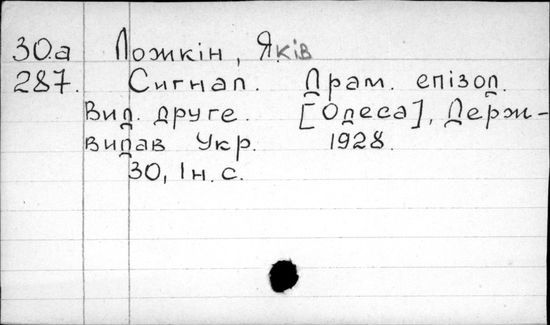 30.а Ложкін, Яків
287. Сигнал. Драм. епізод.
Вид. друге. [Одеса], Держ-
видав Укр. 1928.
30, 1 н. с.